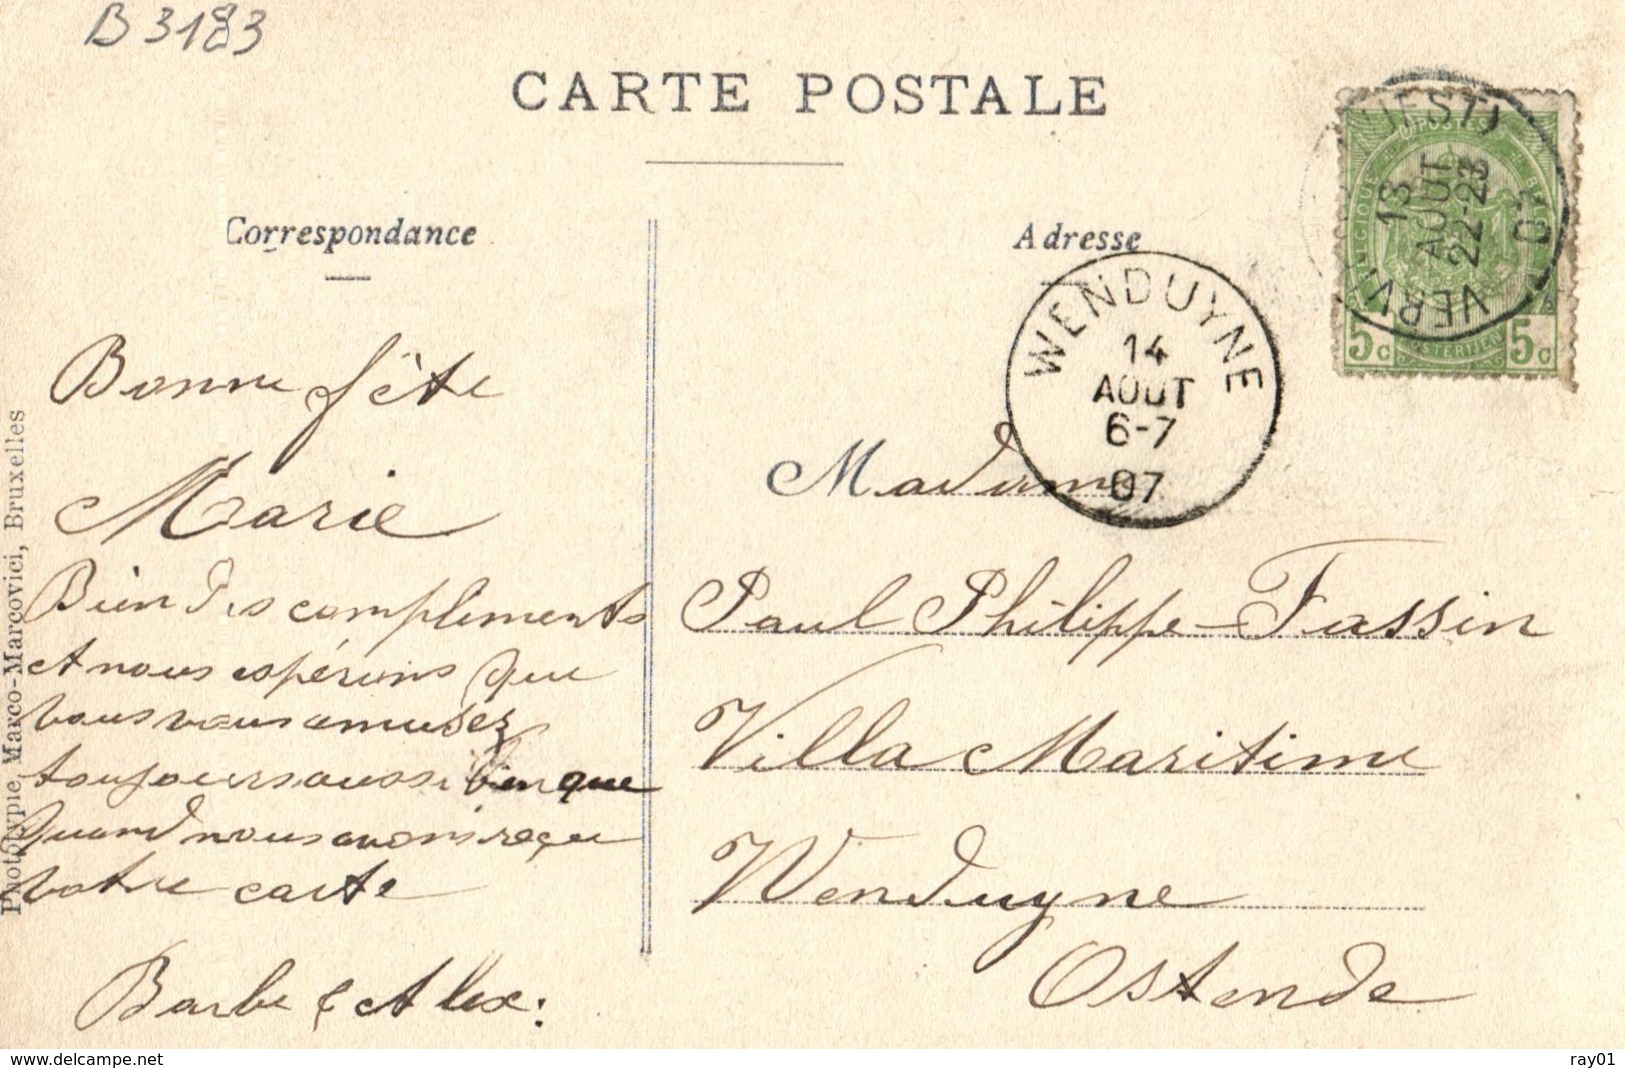 B 3183
CARTE POSTALE
Correspondance
Adresse
Bonne fête
Marie
Bien des compliments
et nous espérons que
vous vous amusez
toujours aussi bien que
quand nous avons reçu
votre carte
Barbe & Alex:
Madame
Paul Philippe-Fassin
Villa Maritime
Wenduyne
Ostende
WENDUYNE
14
AOUT
6-7
07
(OUEST)
13
AOUT
22-23
07
POSTES
5c 5c
Phototypie Marco-Marcovici, Bruxelles
www.delcampe.net
ray01